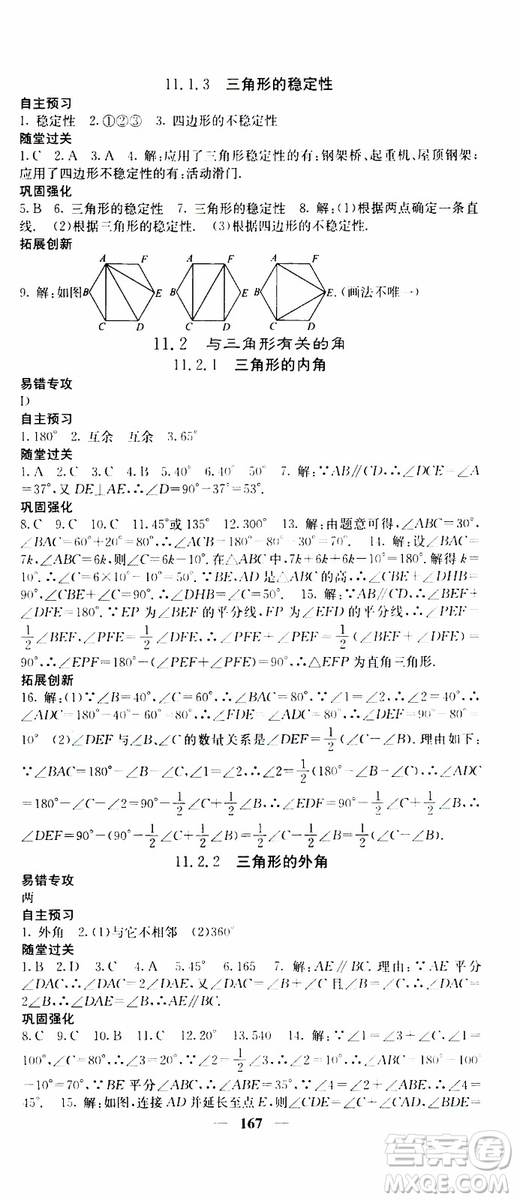 11.1.3 三角形的稳定性
自主预习
1. 稳定性 2. ①②③ 3. 四边形的不稳定性
随堂过关
1. C 2. A 3. A 4. 解:应用了三角形稳定性的有:钢架桥、起重机、屋顶钢架;
应用了四边形不稳定性的有:活动滑门.
巩固强化
5. B 6. 三角形的稳定性 7. 三角形的稳定性 8. 解:(1)根据两点确定一条直
线. (2)根据三角形的稳定性. (3)根据四边形的不稳定性.
拓展创新
A F A F A F
9. 解:如图 B E B E B E .(画法不唯一)
C D C D C D
11.2 与三角形有关的角
11.2.1 三角形的内角
易错专攻
D
自主预习
1. 180° 2. 互余 互余 3. 65°
随堂过关
1. A 2. C 3. D 4. B 5. 40° 6. 40° 50° 7. 解:∵AB∥CD,∴∠DCE=∠A
=37°,又DE⊥AE,∴∠D=90°-∠DCE=53°.
巩固强化
8. C 9. C 10. C 11. 45°或135° 12. 300° 13. 解:由题意可得,∠ABC=30°,
∠BAC=60°+20°=80°,∴∠C=180°-80°-30°=70°. 14. 解:设∠BAC=
7k,∠ABC=6k,则∠C=5k. 在△ABC中,7k+6k+5k=180°. 解得k=10°.
∴∠ABC=6×10°=60°. ∵BD、CE是△ABC的高,∴∠CBE+∠DHB=
90°,∠CBE+∠C=90°,∴∠DHB=∠C=50°. 15. 解:∵AB∥CD,∴∠BEF+
∠DFE=180°. ∵EP为∠BEF的平分线,FP为∠EFD的平分线,∴∠PEF=
1/2∠BEF,∠PFE=1/2∠DFE,∴∠PEF+∠PFE=1/2(∠BEF+∠DFE)=
90°,∴∠EPF=180°-(∠PEF+∠PFE)=90°,∴△EPF为直角三角形.
拓展创新
16. 解:(1)∵∠B=40°,∠C=60°,∴∠BAC=80°,∴∠1=∠2=40°,∴
∠ADC=180°-∠2-∠C=80°,∴∠FDE=∠ADC=80°,∴∠DEF=90°-80°=
10° (2)∠DEF与∠B,∠C的数量关系是∠DEF=1/2(∠C-∠B). 理由如下:
∵∠BAC=180°-∠B-∠C,∴∠2=1/2∠BAC=90°-1/2(∠B+∠C),∴∠ADC
=180°-∠C-∠2=90°-1/2(∠C-∠B),∴∠EDF=90°-1/2(∠C-∠B),∴
∠DEF=90°-(90°-1/2∠C+1/2∠B)=1/2(∠C-∠B).
11.2.2 三角形的外角
易错专攻
两
自主预习
1. 外角 2. (1)与它不相邻 (2)360°
随堂过关
1. B 2. D 3. A 4. D 5. 45° 6. 165 7. 解:AE∥BC. 理由:∵AE平分
∠DAC,∴∠DAC=2∠DAE. ∵∠B=∠C,∴∠DAC=∠B+∠C=2∠B,∴
2∠B=2∠DAE,∴∠B=∠DAE,∴AE∥BC.
巩固强化
8. C 9. C 10. B 11. C 12. 20° 13. 540 14. 解:∵∠1=∠3+∠C,∠1=
100°,∠C=80°,∴∠3=20°. ∵∠2=1/2∠3,∴∠2=10°,∴∠BAC=∠3+∠2=
30°,∴∠ABC=180°-∠C-∠BAC=
70°. ∵BE平分∠ABC,∴∠ABE=35°. ∵∠4=∠2+∠ABE,∴∠4=
45°. 15. 解:如图,连接AD并延长至点E,∵∠1=∠C+∠CAD,∠2=∠B+
167
答案圈